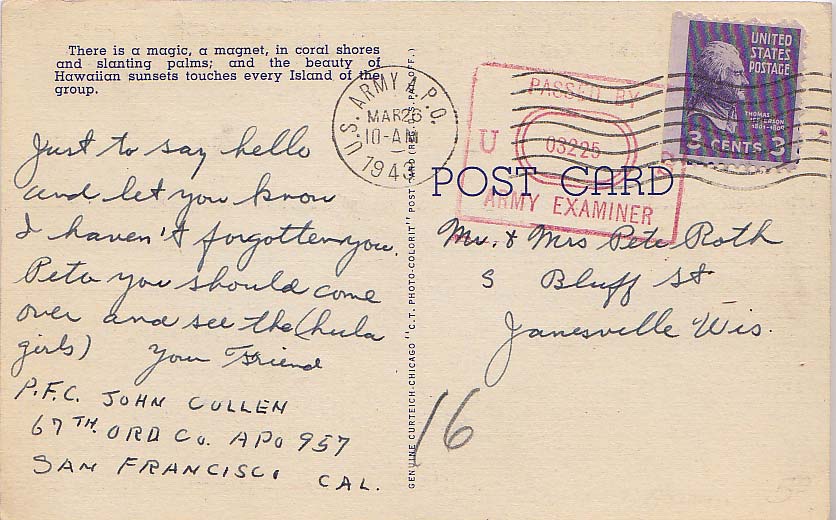 There is a magic, a magnet, in coral shores
and slanting palms; and the beauty of
Hawaiian sunsets touches every Island of the
group.
Just to say hello
and let you know
I haven't forgotten you.
Pete you should come
over and see the (hula
girls) Your Friend
P.F.C. JOHN CULLEN
67TH. ORD CO. APO 957
SAN FRANCISCO CAL.
GENUINE CURTEICH-CHICAGO "C.T. PHOTO-COLORIT" POST CARD (REG. U.S. PAT. OFF.)
U.S. ARMY A.P.O.
MAR 26
10-AM
1943
PASSED BY
U S
03225
ARMY EXAMINER
UNITED
STATES
POSTAGE
THOMAS
JEFFERSON
1801-1809
3 CENTS 3
POST CARD
Mr. & Mrs Pete Roth
S Bluff St
Janesville Wis.
16